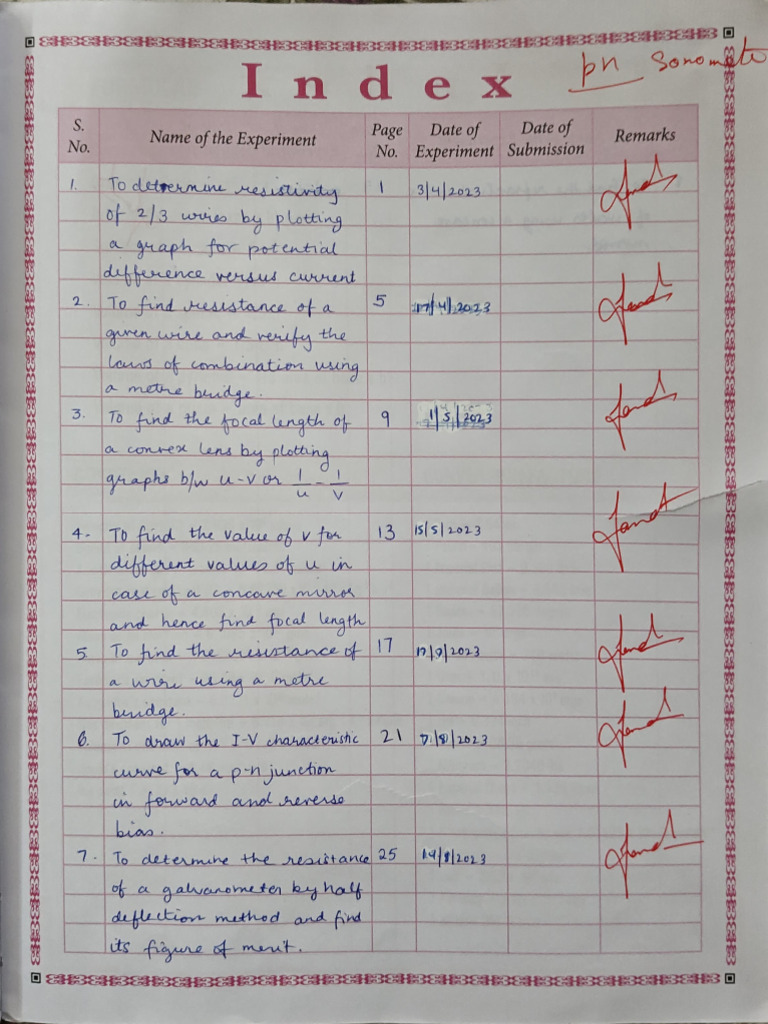 pn Sonomet
Index
S. No. Name of the Experiment Page No. Date of Experiment Date of Submission Remarks
1. To determine resistivity 1 3/4/2023
of 2/3 wires by plotting
a graph for potential
difference versus current
2. To find resistance of a 5 17/4/2023
given wire and verify the
laws of combination using
a metre bridge.
3. To find the focal length of 9 1/5/2023
a convex lens by plotting
graphs b/w u-v or 1/u - 1/v
4. To find the value of v for 13 15/5/2023
different values of u in
case of a concave mirror
and hence find focal length
5. To find the resistance of 17
a wire using a metre
bridge.
6. To draw the I-V characteristic 21 7/8/2023
curve for a p-n junction
in forward and reverse
bias.
7. To determine the resistance 25 14/8/2023
of a galvanometer by half
deflection method and find
its figure of merit.